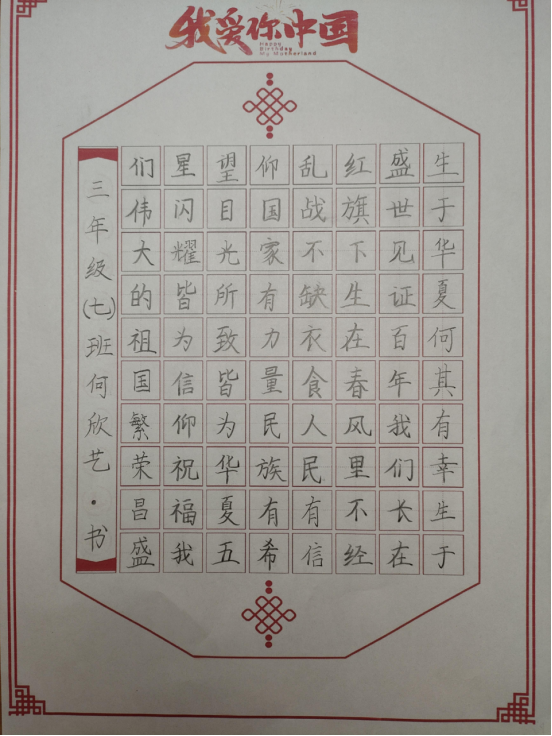 我爱你中国
Happy
Birthday
My Motherland
生于华夏何其有幸生于
盛世见证百年我们长在
红旗下生在春风里不经
乱战不缺衣食人民有信
仰国家有力量民族有希
望目光所致皆为华夏五
星闪耀皆为信仰祝福我
们伟大的祖国繁荣昌盛
三年级(七)班何欣艺·书